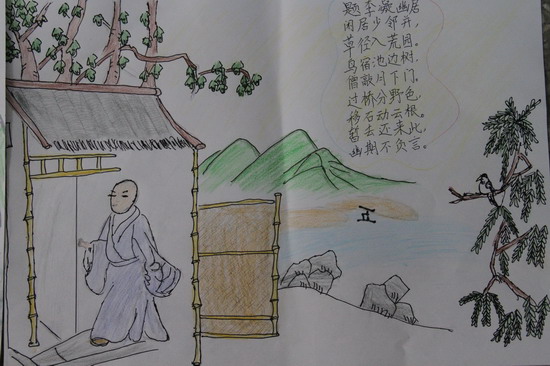 题李凝幽居
闲居少邻并，
草径入荒园。
鸟宿池边树，
僧敲月下门。
过桥分野色，
移石动云根。
暂去还来此，
幽期不负言。